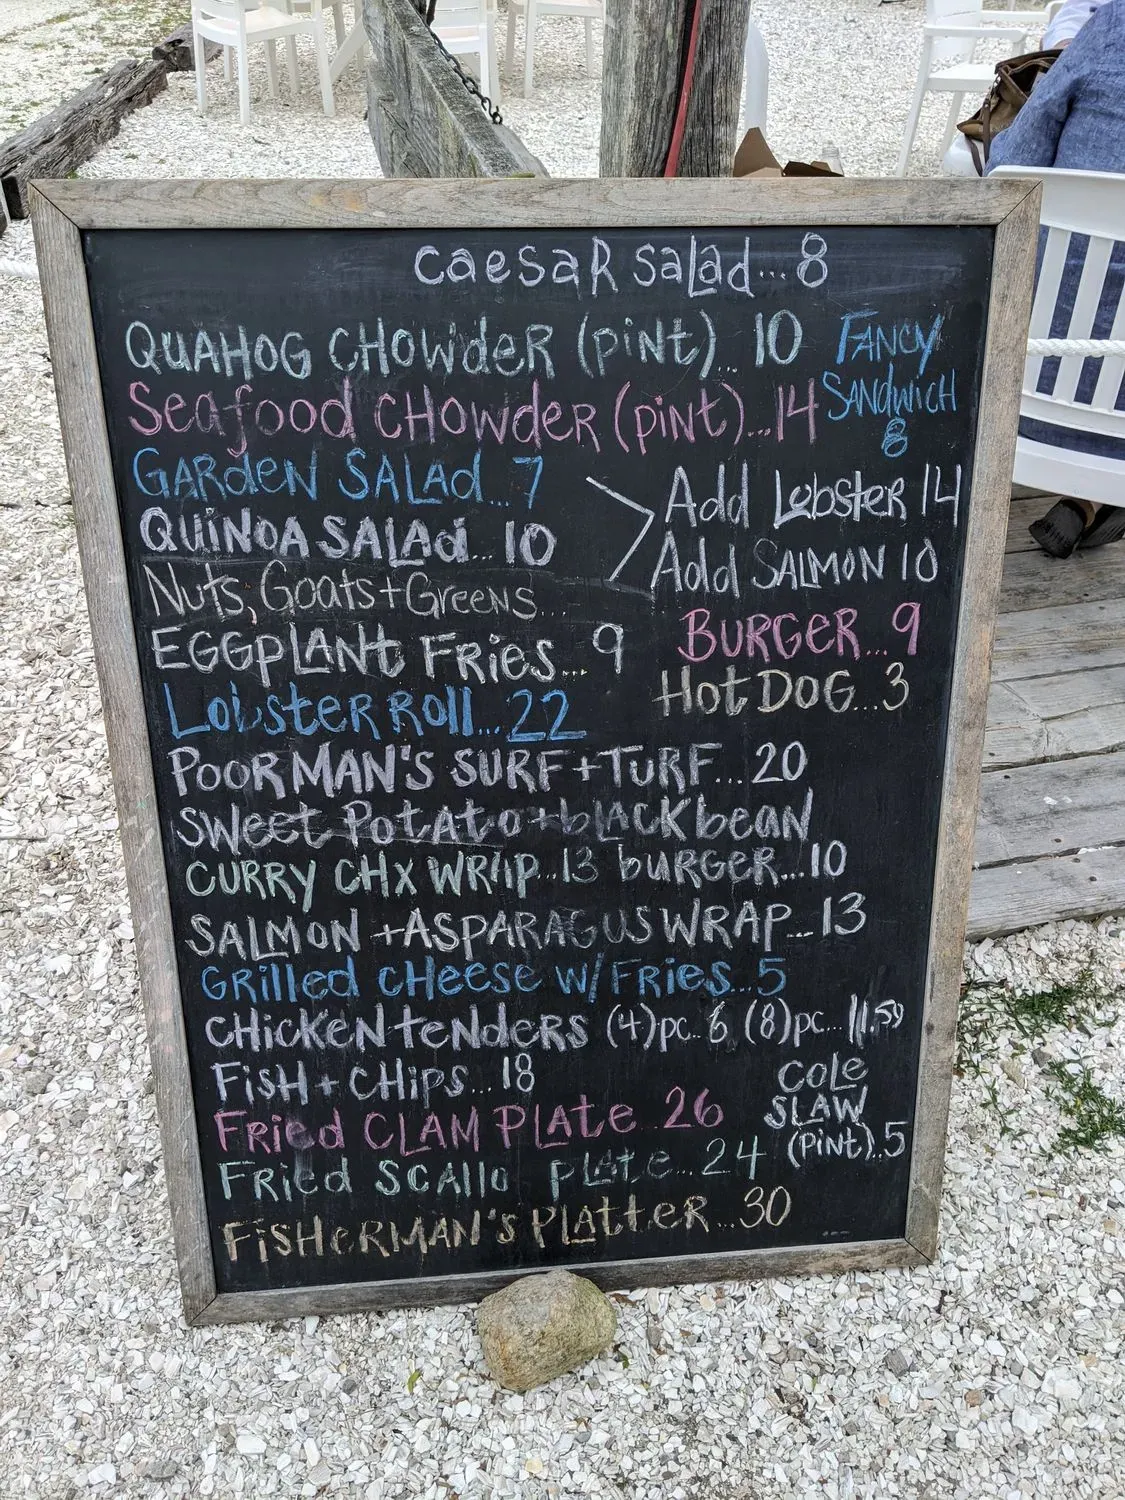 caesaR salad...8
QUAHOG CHOWdeR (piNt)...10
FANCY
SANdWiCH
8
Seafood CHOWdeR (piNt)...14
GARdeN SALAd...7
Add Lobster 14
QUiNOA SALAd...10
Add SALMON 10
Nuts, Goats+Greens...
BURGeR...9
EGGpLANt FRies...9
Hot DOG...3
LobsteR Roll...22
POORMAN'S SURF+TURF...20
SWeet PotAto+bLACK beAN
buRGeR...10
CURRY CHX WRAp...13
SALMON +ASPARAGUS WRAP...13
GRilled cHeese w/FRies...5
CHiCKeN teNdeRS (4)pc..6 (8)pc...11.50
FiSH+CHipS...18
COLe
SLAW
(PiNt)..5
FRied CLAM PLAte...26
FRied SCAllo pLAte...24
FiSHeRMAN'S PLAtteR...30